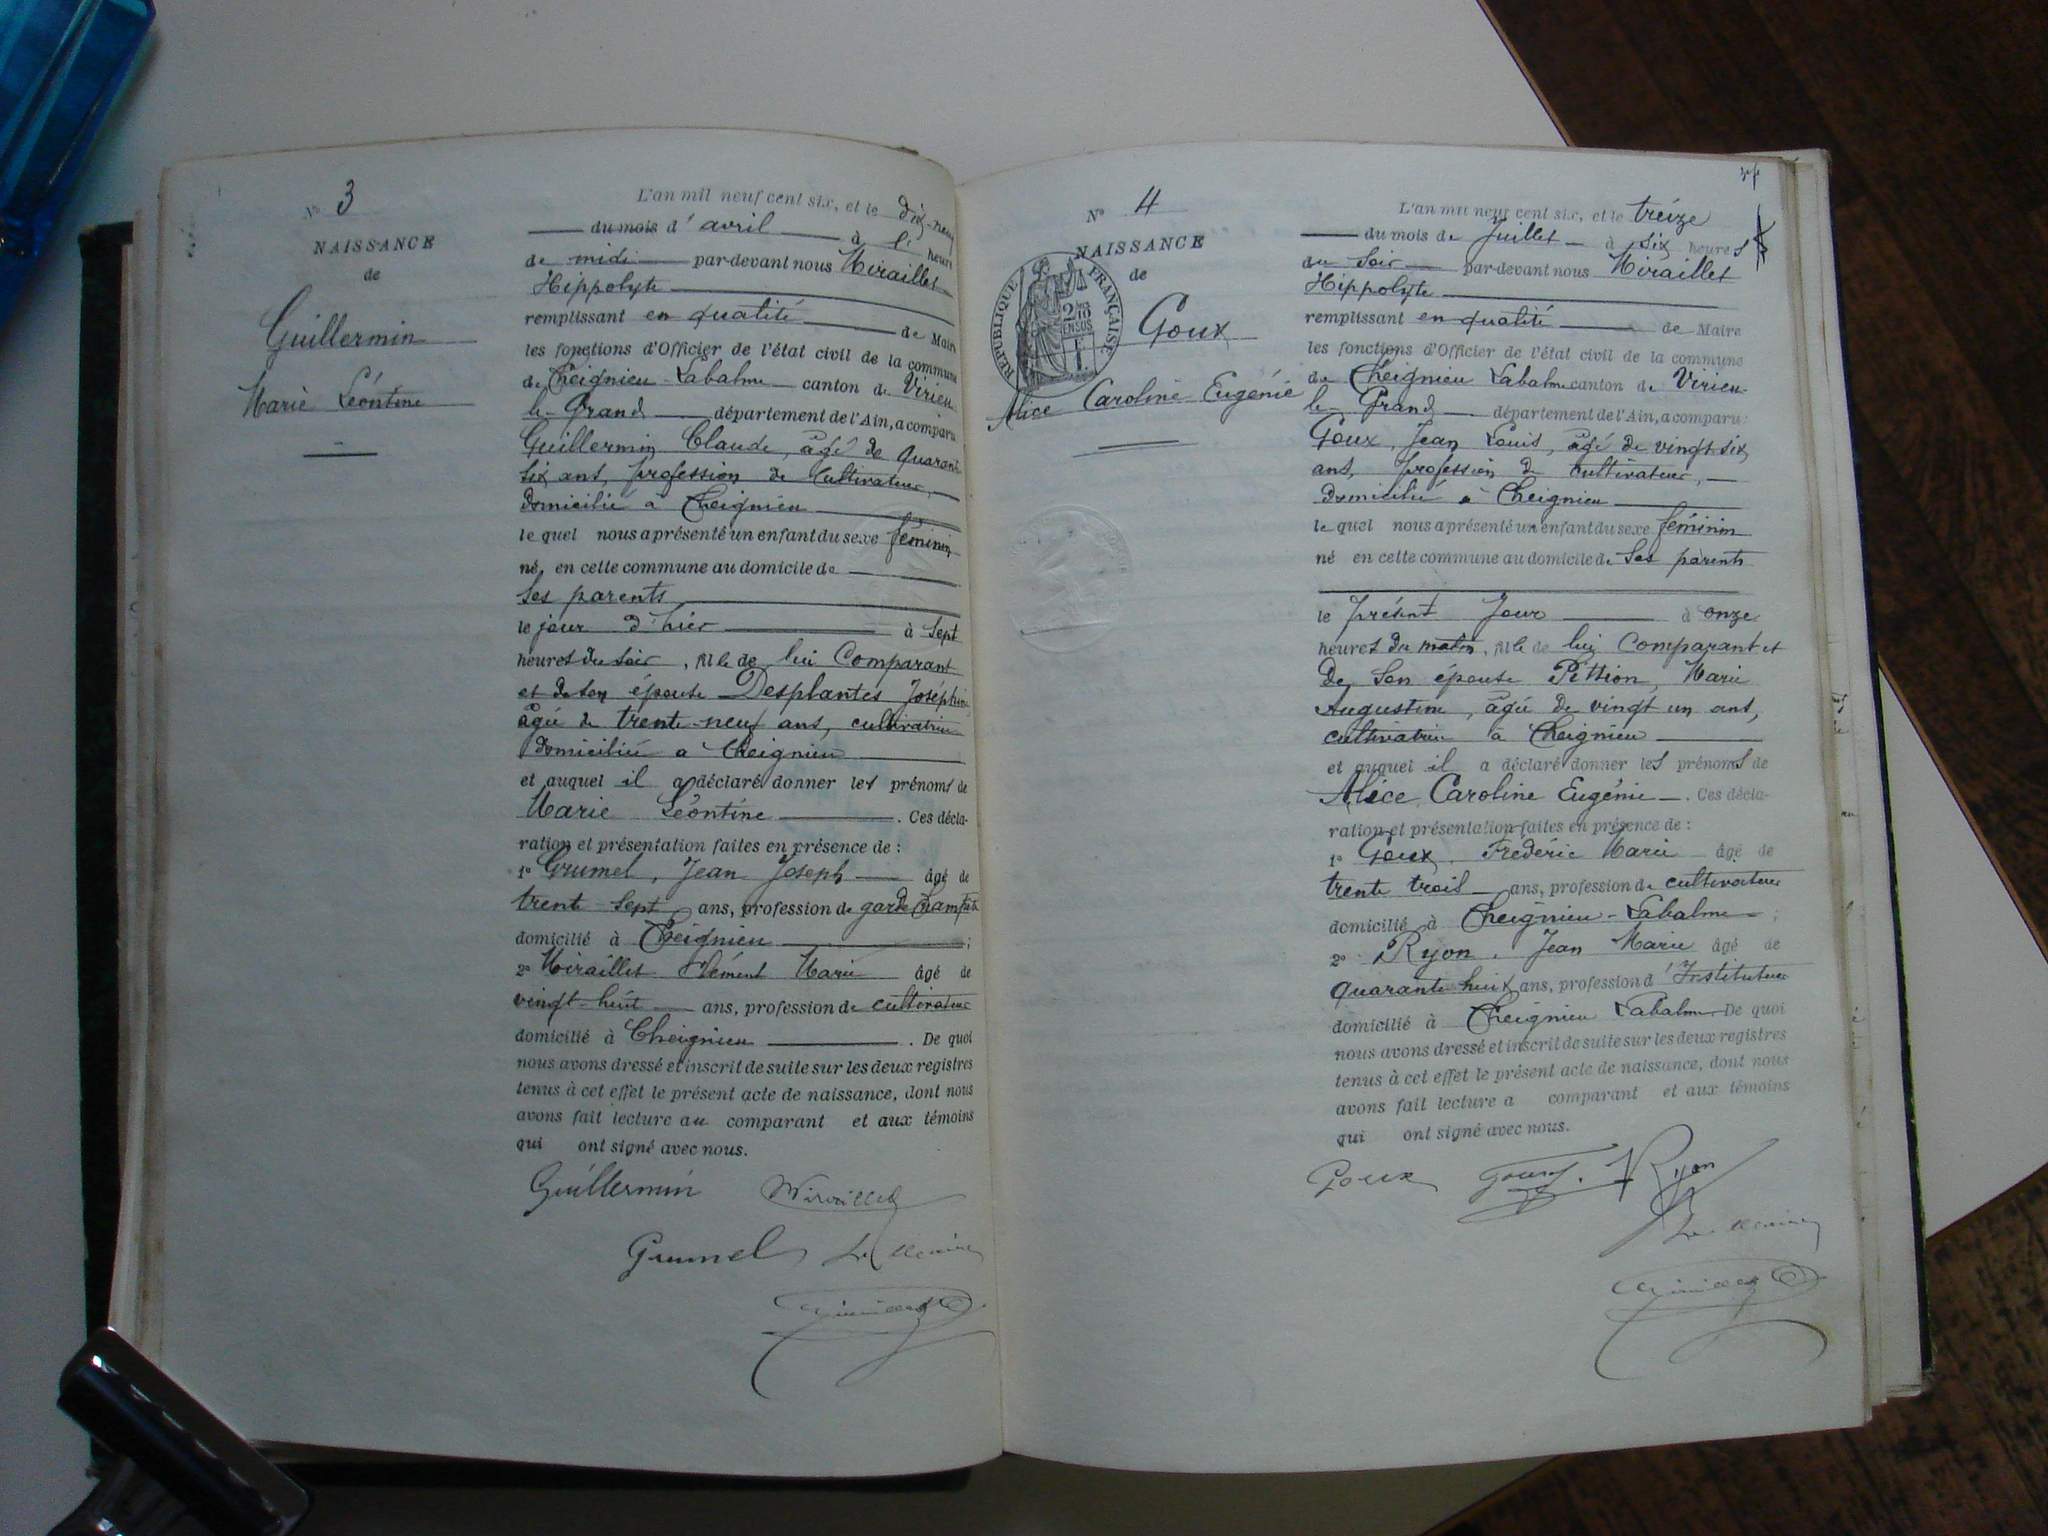 N° 3
NAISSANCE
de
Guillermin
Marie Léontine
L'an mil neuf cent six, et le dix-neuf
du mois d'avril à l' heure
de midi par-devant nous Miraillet
Hippolyte
remplissant en qualité de Maire
les fonctions d'Officier de l'état civil de la commune
de Cheignieu-Labalme canton de Virieu
le-Grand département de l'Ain, a comparu
Guillermin Claude, âgé de quarante
six ans, profession de cultivateur,
domicilié à Cheignieu
le quel nous a présenté un enfant du sexe féminin
né, en cette commune au domicile de
ses parents
le jour d'hier à sept
heures du soir, fille de lui Comparant
et de son épouse Desplantes Joséphine
âgée de trente-neuf ans, cultivatrice
domiciliée à Cheignieu
et auquel il a déclaré donner les prénoms de
Marie Léontine . Ces décla-
ration et présentation faites en présence de :
1° Grumel, Jean Joseph âgé de
trente-sept ans, profession de garde champêtre
domicilié à Cheignieu ;
2° Miraillet Clément Marie âgé de
vingt-huit ans, profession de cultivateur
domicilié à Cheignieu . De quoi
nous avons dressé et inscrit de suite sur les deux registres
tenus à cet effet le présent acte de naissance, dont nous
avons fait lecture au comparant et aux témoins
qui ont signé avec nous.
Guillermin Miraillet
Grumel Le Maire
Miraillet
N° 4
NAISSANCE
de
RÉPUBLIQUE FRANÇAISE
2/10
EN SUS
Goux
Alice Caroline Eugénie
L'an mil neuf cent six, et le treize
du mois de Juillet à six heures
du soir par-devant nous Miraillet
Hippolyte
remplissant en qualité de Maire
les fonctions d'Officier de l'état civil de la commune
de Cheignieu Labalme canton de Virieu
le-Grand département de l'Ain, a comparu:
Goux, Jean Louis, âgé de vingt-six
ans, profession de cultivateur,
domicilié à Cheignieu
le quel nous a présenté un enfant du sexe féminin
né en cette commune au domicile de ses parents
le présent jour à onze
heures du matin, fille de lui comparant et
de son épouse Pittion, Marie
Augustine, âgée de vingt un ans,
cultivatrice à Cheignieu
et auquel il a déclaré donner les prénoms de
Alice Caroline Eugénie . Ces décla-
ration et présentation faites en présence de :
1° Goux, Frédéric Marie âgé de
trente trois ans, profession de cultivateur
domicilié à Cheignieu-Labalme ;
2° Ryon, Jean Marie âgé de
quarante huit ans, profession d'Instituteur
domicilié à Cheignieu Labalme De quoi
nous avons dressé et inscrit de suite sur les deux registres
tenus à cet effet le présent acte de naissance, dont nous
avons fait lecture a comparant et aux témoins
qui ont signé avec nous.
Goux Goux Ryon
Le Maire
Miraillet